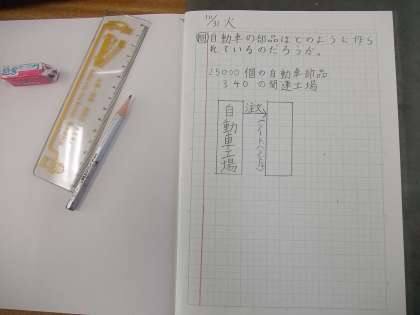 10/31 火
問 自動車の部品はどのように作ら
れているのだろうか。
25000個の自動車部品
340の関連工場
自動車工場
注文